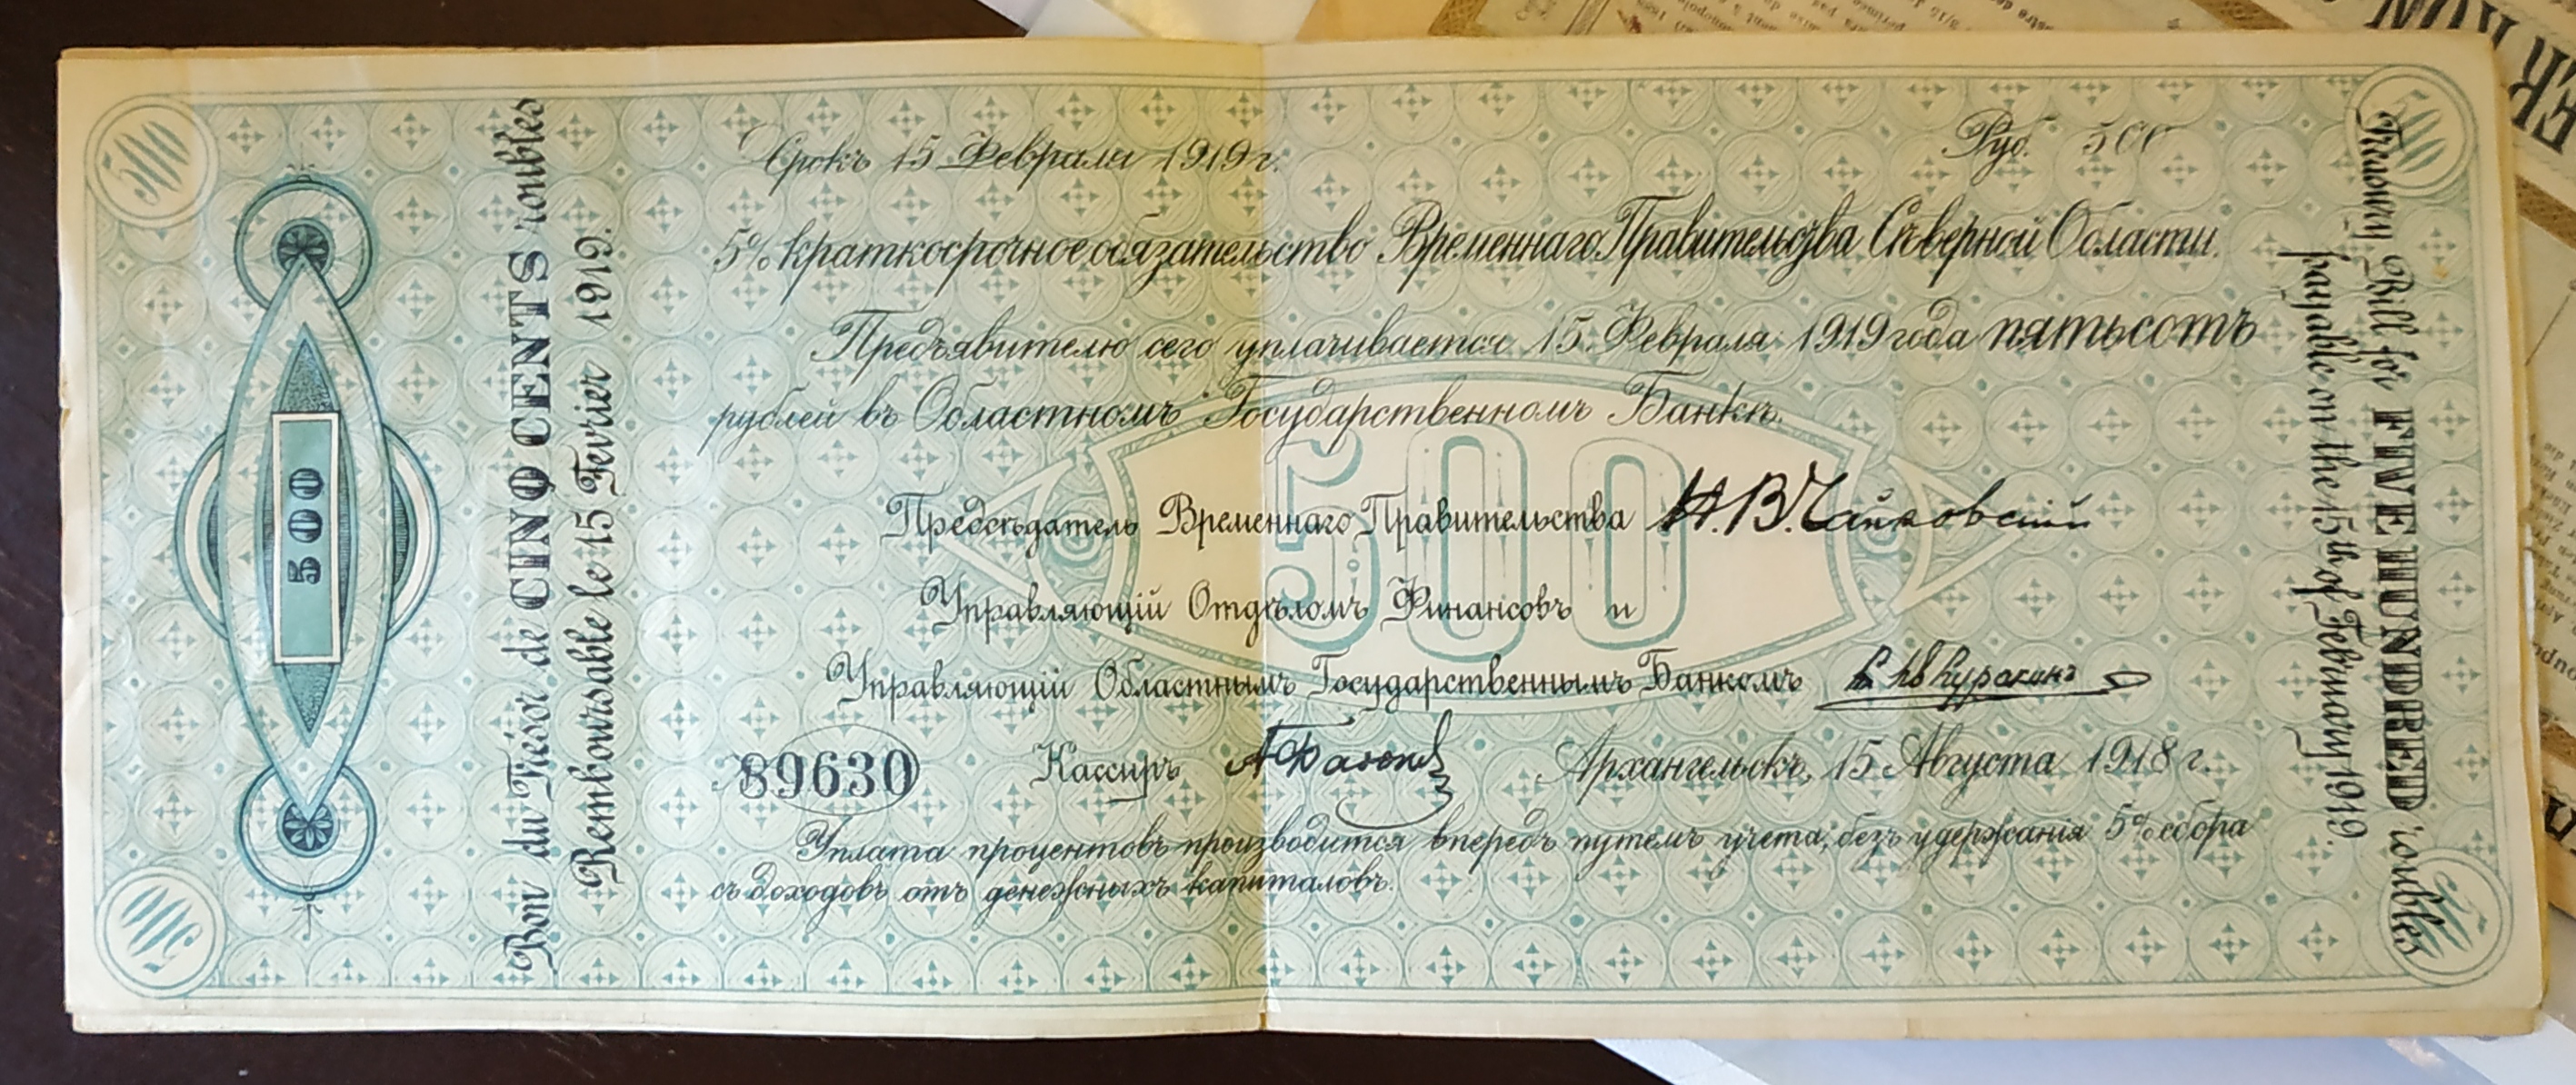 500
500
Срокъ 15 Февраля 1919 г.
Руб. 500
5% краткосрочное обязательство Временнаго Правительства Сѣверной Области.
Предъявителю сего уплачивается 15 Февраля 1919 года пятьсотъ
рублей въ Областномъ Государственномъ Банкѣ.
500
Предсѣдатель Временнаго Правительства Н. В. Чайковскій
Управляющій Отдѣломъ Финансовъ и
Управляющій Областнымъ Государственнымъ Банкомъ Куракинъ
89630
Кассиръ
Архангельскъ, 15 Августа 1918 г.
Уплата процентовъ производится впередъ путемъ учета, безъ удержанія 5% сбора
съ доходовъ отъ денежныхъ капиталовъ.
500
Bon du Trésor de CINQ CENTS roubles
Remboursable le 15 Fevrier 1919.
Treasury Bill for FIVE HUNDRED roubles
payable on the 15th of February 1919.
500
500